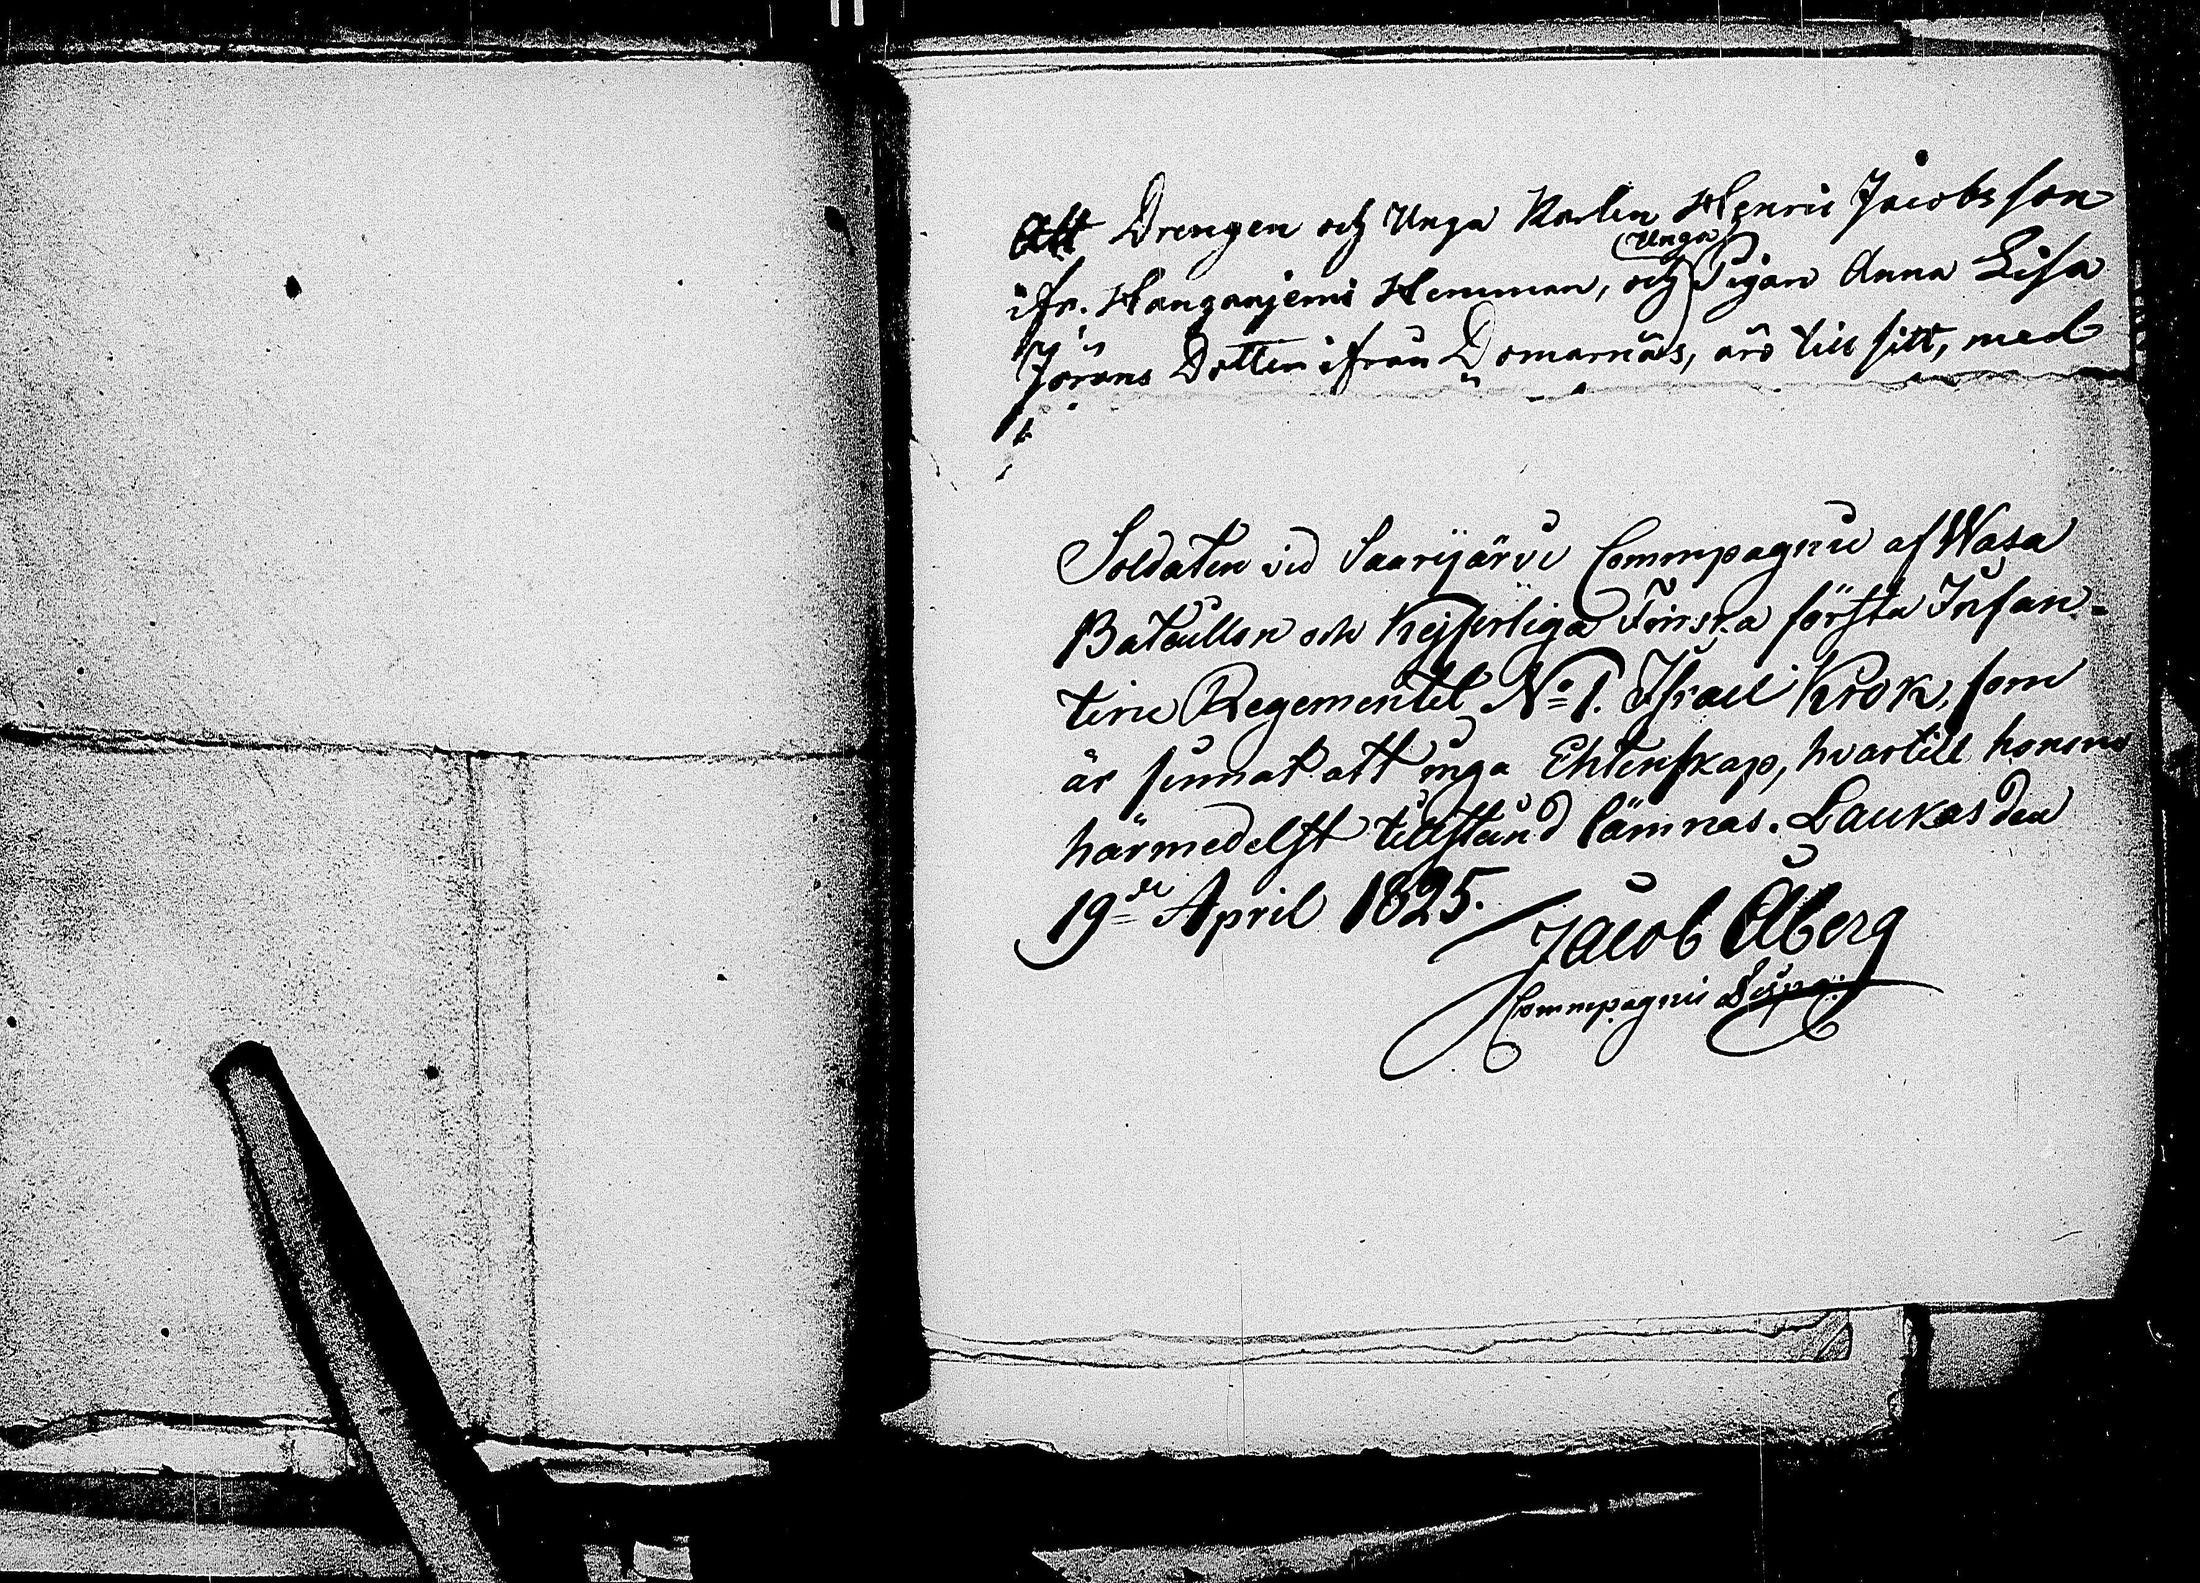 Att Drengen och Unga Karlen Henric Jacobsson
ifr. Kangasjemi Hemman, och Unga Pigan Anna Lisa
Jörans Dotter ifrån Domarnäs, äro till sitt, med
Soldaten vid Saarijärvi Commpagnie af Wasa
Bataillon och Kejserliga Finska första Infan-
terie Regementet No 1. Israel Krok, som
är sinnat att inga Ehtenskap, hvartill honom
härmedelst tillstånd lämnas. Laukas den
19de April 1825.
Jacob Åberg
Commpagnie